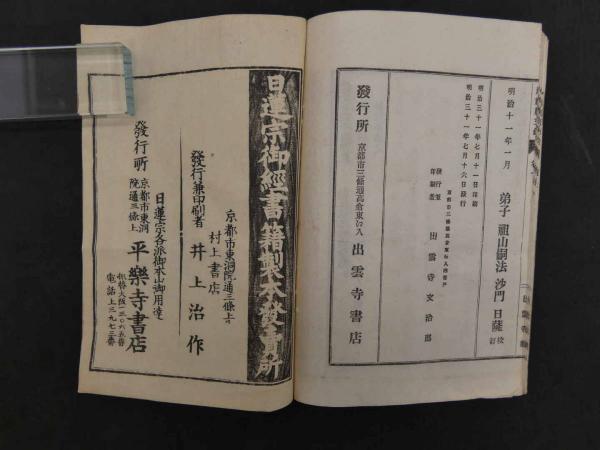 明治十一年一月
弟子 祖山嗣法 沙門 日薩 校訂
明治三十一年七月十一日印刷
明治三十一年七月十六日發行
京都市三條通高倉東入
發行者
印刷者
出雲寺文治郎
發行所 京都市三條通高倉東入 出雲寺書店
日蓮宗御經書籍製本發賣所
京都市東洞院通三條上ル
村上書店
發行兼印刷者 井上治作
日蓮宗各派御本山御用達
發行所 京都市東洞院通三條上 平樂寺書店
電話上三九七三番